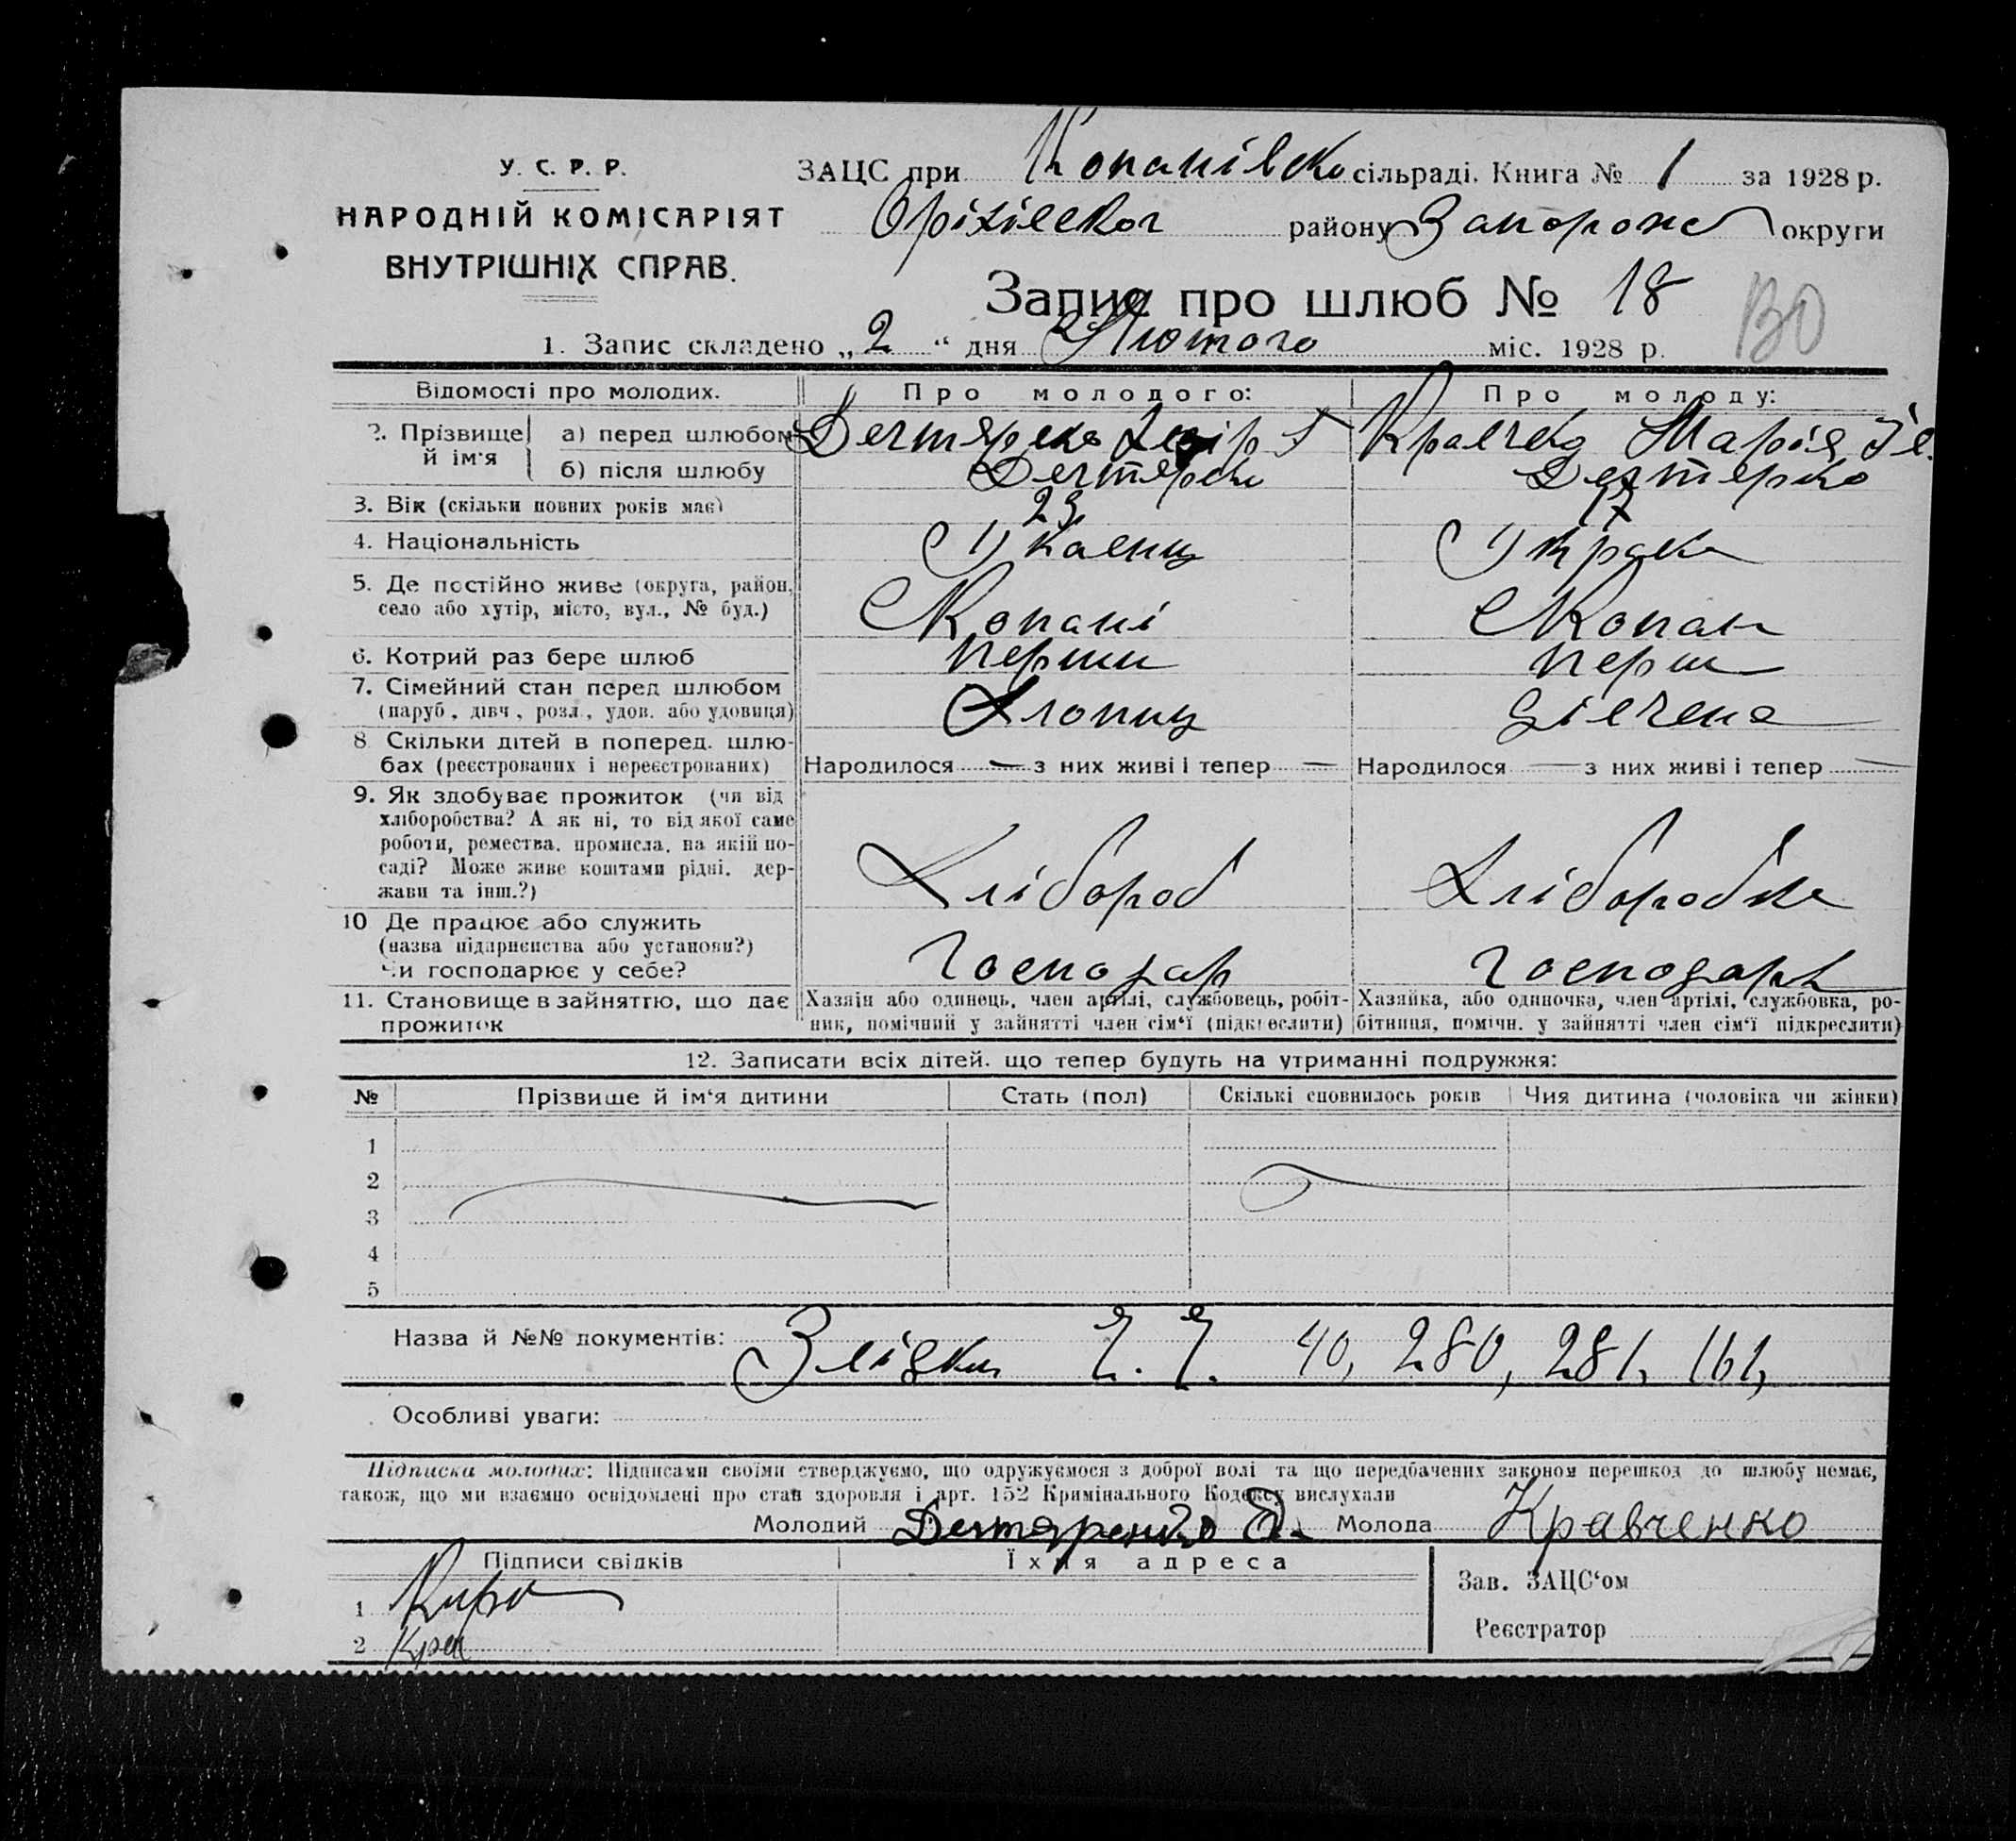 У. С. Р. Р.
НАРОДНІЙ КОМІСАРІЯТ
ВНУТРІШНІХ СПРАВ.
ЗАЦС при Копанівско сільраді. Книга № 1 за 1928 р.
району Запорож округи
Запис про шлюб № 18
1. Запис складено „2“ дня Лютого міс. 1928 р.
Відомості про молодих.
Про молодого:
Про молоду:
2. Прізвище й ім'я
а) перед шлюбом
Марія
б) після шлюбу
3. Вік (скільки повних років має)
23
17
4. Національність
5. Де постійно живе (округа, район, село або хутір, місто, вул., № буд.)
Копані
Копан
6. Котрий раз бере шлюб
перши
перш
7. Сімейний стан перед шлюбом
(паруб., дівч., розл., удов. або удовиця)
Хлопиц
8 Скільки дітей в поперед. шлю-
бах (реєстрованих і нереєстрованих)
Народилося — з них живі і тепер —
Народилося — з них живі і тепер —
9. Як здобуває прожиток (чи від
хліборобства? А як ні, то від якої саме
роботи, ремества, промисла, на якій по-
саді? Може живе коштами рідні, дер-
жави та інш.?)
Хлібороб
Хліборобка
10 Де працює або служить
(назва підприємства або установи?)
Чи господарює у себе?
Господар
Господарь
11. Становище в зайняттю, що дає
прожиток
Хазяїн або одинець, член артілі, службовець, робіт-
ник, помічний у зайнятті член сім'ї (підкреслити)
Хазяйка, або одиночка, член артілі, службовка, ро-
бітниця, помічн. у зайнятті член сім'ї підкреслити)
12. Записати всіх дітей, що тепер будуть на утриманні подружжя:
№
Прізвище й ім'я дитини
Стать (пол)
Скількі сповнилось років
Чия дитина (чоловіка чи жінки)
1
2
3
4
5
Назва й №№ документів: 40, 280, 281, 161,
Особливі уваги:
Підписка молодих: Підписами своїми стверджуємо, що одружуємося з доброї волі та що передбачених законом перешкод до шлюбу немає,
також, що ми взаємно освідомлені про стан здоровля і арт. 152 Кримінального Кодексу вислухали
Молодий Дегтяренко
Молода Кравченко
Підписи свідків
Їхня адреса
1
2 Кра
Зав. ЗАЦС'ом
Реєстратор